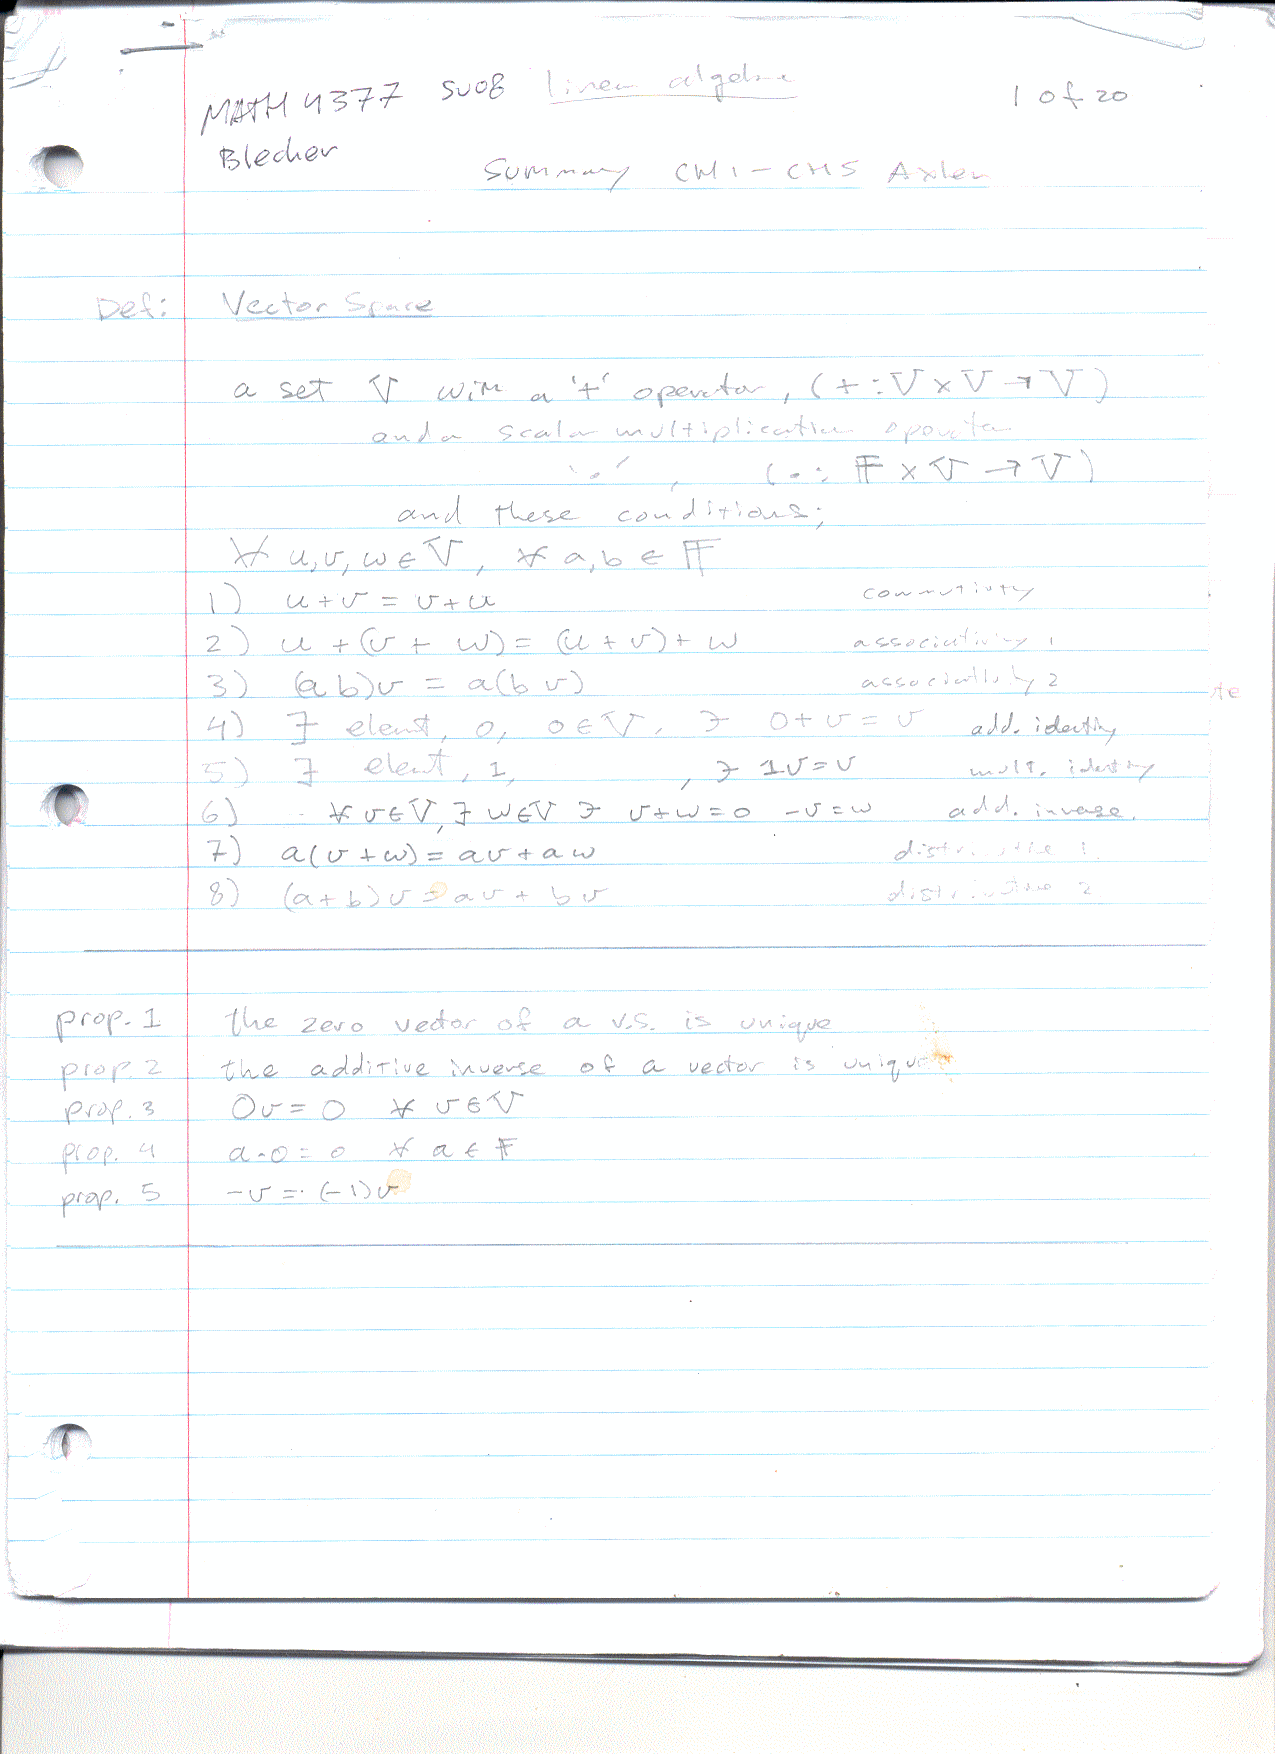 MATH 4377 SU08 linear algebra 1 of 20
Blecher
Summary CH1 – CH5 Axler
Def: Vector Space
a set V with a '+' operator, (+ : V x V → V)
and a scalar multiplication operator
'·', (· : F x V → V)
and these conditions;
∀ u, v, w ∈ V, ∀ a, b ∈ F
1) u + v = v + u commutivty
2) u + (v + w) = (u + v) + w associativity 1
3) (a b)v = a(b v) associativity 2
4) ∃ elemt, 0, 0 ∈ V, ∋ 0 + v = v add. identity
5) ∃ elemt, 1, , ∋ 1v = v mult. identity
6) ∀ v ∈ V, ∃ w ∈ V ∋ v + w = 0 -v = w add. inverse.
7) a(v + w) = av + aw distributive 1
8) (a + b)v = av + bv distributive 2
prop. 1 the zero vector of a v.s. is unique
prop. 2 the additive inverse of a vector is unique
prop. 3 0v = 0 ∀ v ∈ V
prop. 4 a·0 = 0 ∀ a ∈ F
prop. 5 -v = (-1)v
te